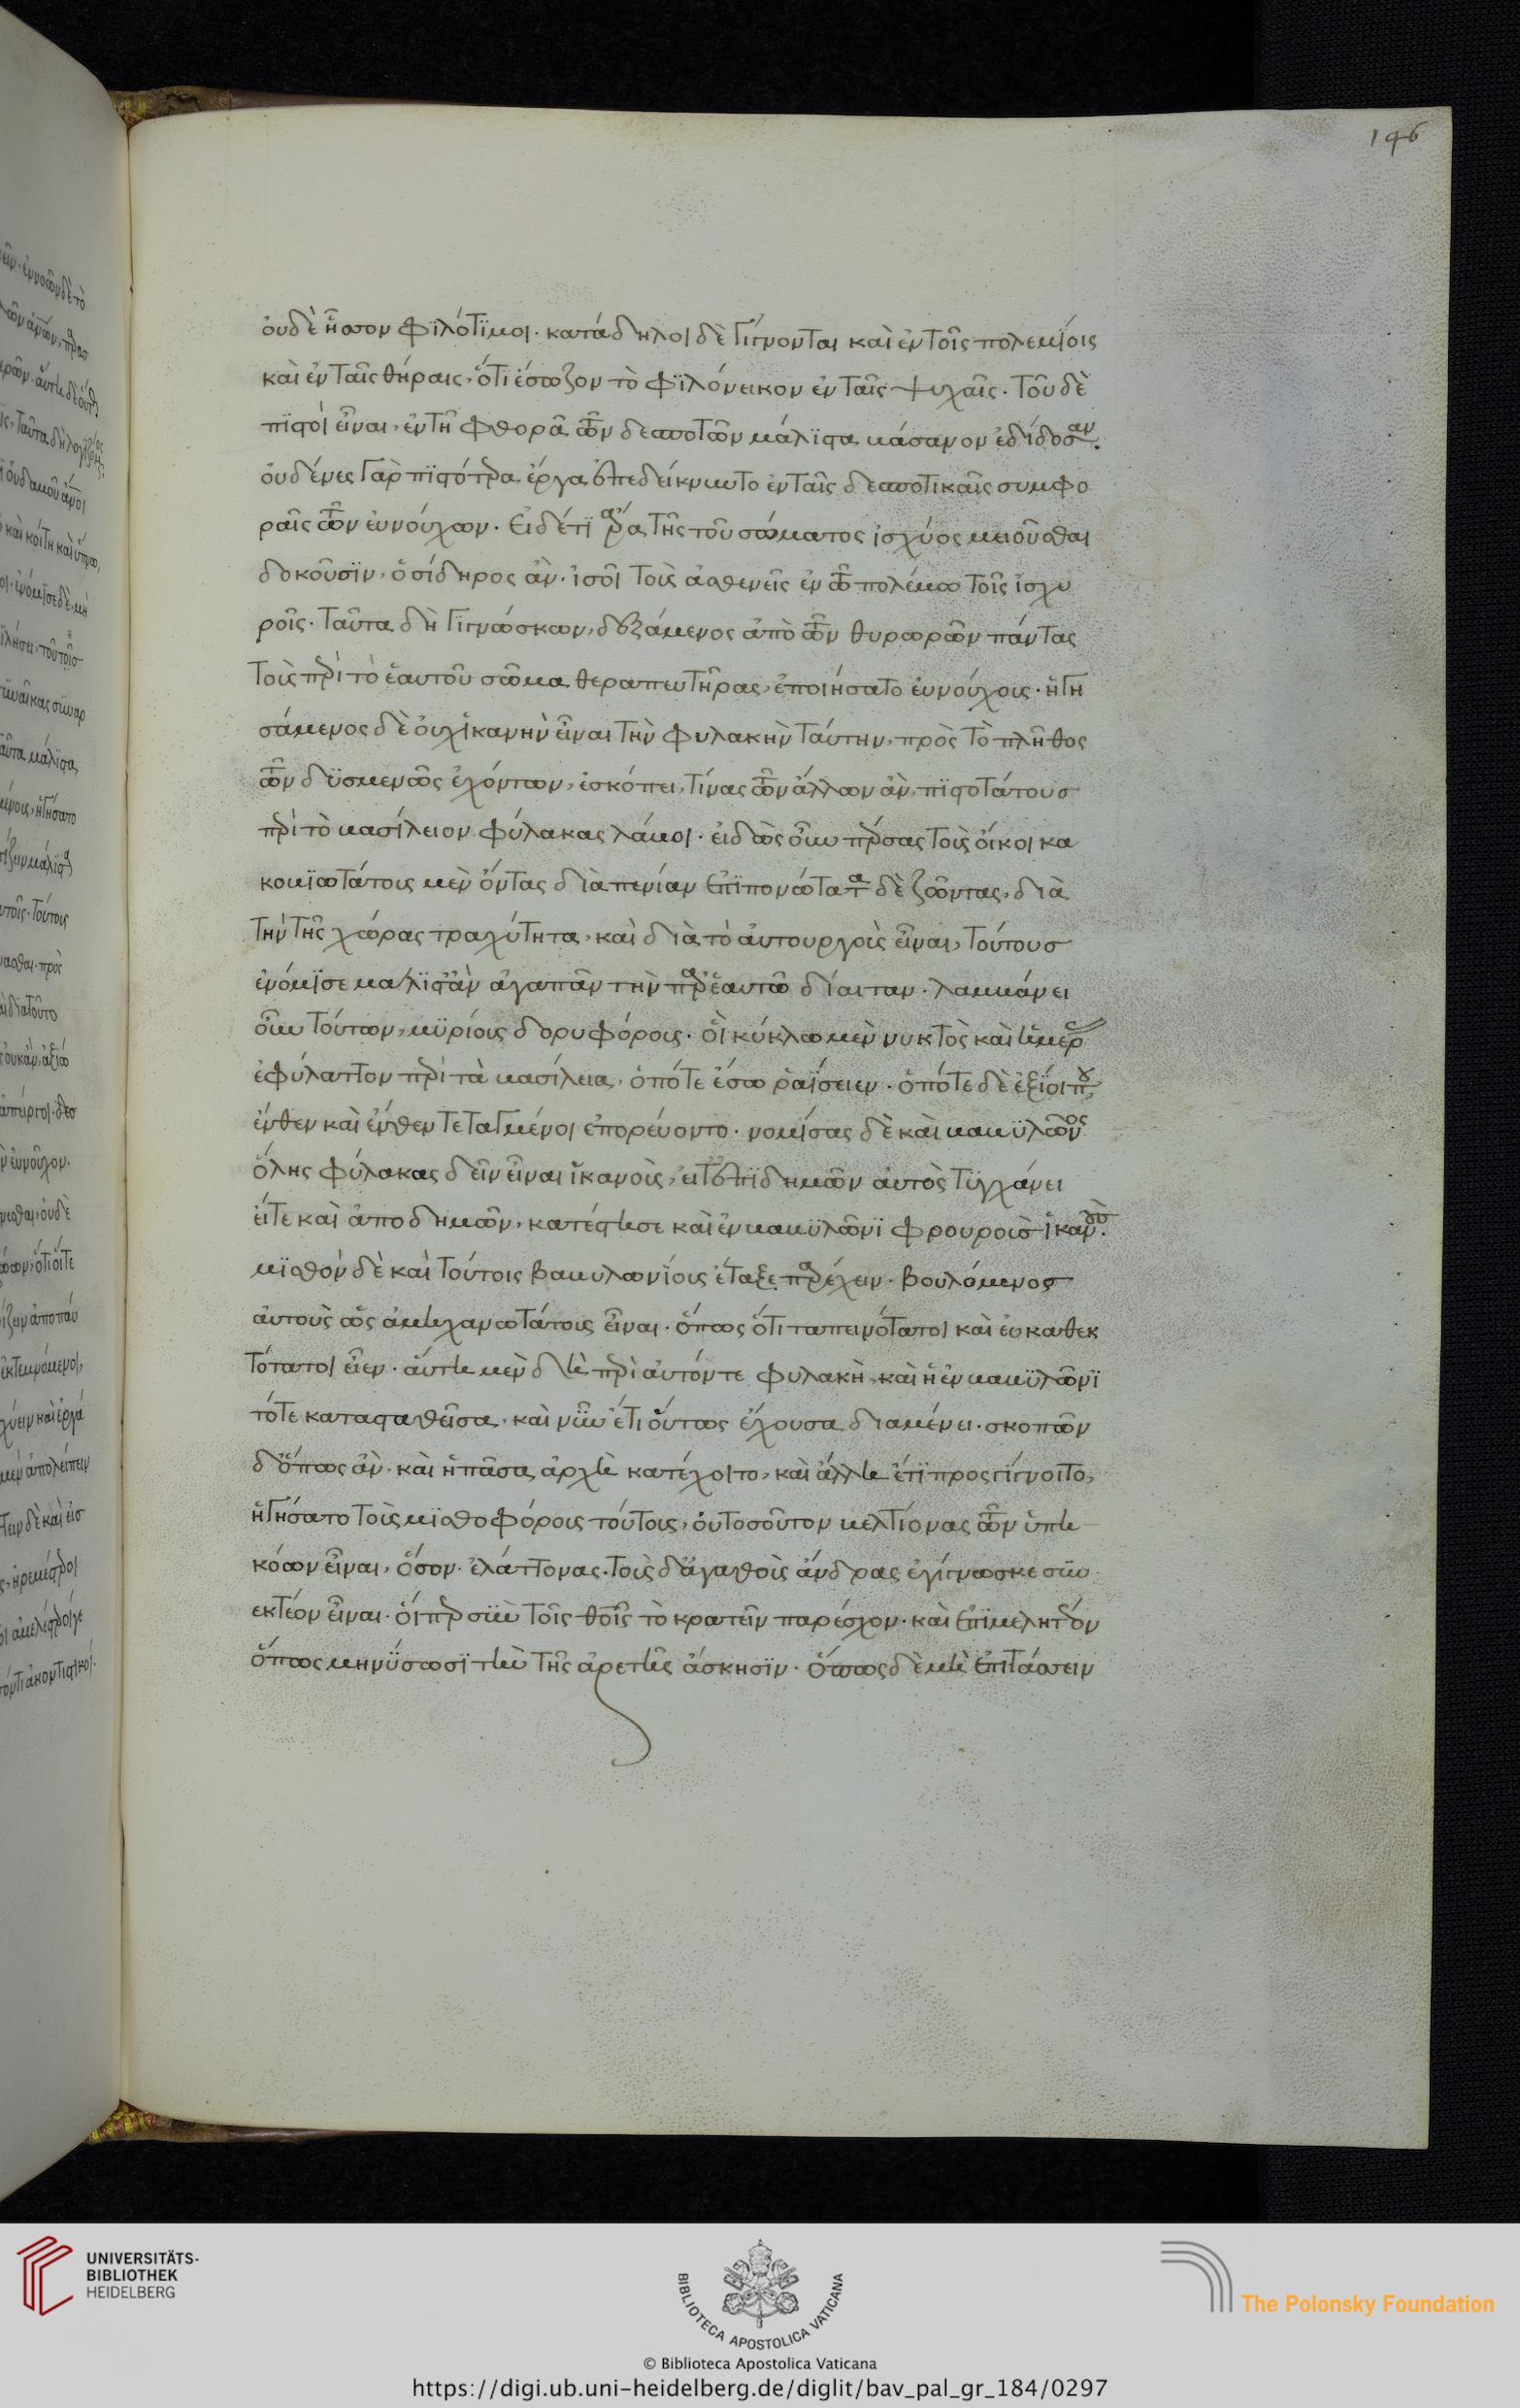 146
οὐδὲ ἧσσον φιλότιμοι· κατάδηλοι δὲ γίγνονται καὶ ἐν τοῖς πολεμίοις
καὶ ἐν ταῖς θήραις, ὅτι ἔσωζον τὸ φιλόνεικον ἐν ταῖς ψυχαῖς. τοῦ δὲ
πιστοὶ εἶναι, ἐν τῇ φθορᾷ τῶν δεσποτῶν μάλιστα βάσανον ἐδίδοσαν.
οὐδένες γὰρ πιστότερα ἔργα ἀπεδείκνυντο ἐν ταῖς δεσποτικαῖς συμφο
ραῖς τῶν εὐνούχων. εἰ δέ τι ἄρα τῆς τοῦ σώματος ἰσχύος μειοῦσθαι
δοκοῦσιν, ὁ σίδηρος ἀνισοῖ τοὺς ἀσθενεῖς ἐν τῷ πολέμῳ τοῖς ἰσχυ
ροῖς. ταῦτα δὴ γιγνώσκων, ἀρξάμενος ἀπὸ τῶν θυρωρῶν πάντας
τοὺς περὶ τὸ ἑαυτοῦ σῶμα θεραπευτῆρας, ἐποιήσατο εὐνούχους. ἡγη
σάμενος δὲ οὐχ ἱκανὴν εἶναι τὴν φυλακὴν ταύτην, πρὸς τὸ πλῆθος
τῶν δυσμενῶς ἐχόντων, ἐσκόπει, τίνας τῶν ἄλλων ἂν πιστοτάτους
περὶ τὸ βασίλειον φύλακας λάβοι. εἰδὼς οὖν πέρσας τοὺς οἴκοι κα
κοβιωτάτους μὲν ὄντας διὰ πενίαν ἐπιπονώτατα δὲ ζῶντας, διὰ
τὴν τῆς χώρας τραχύτητα, καὶ διὰ τὸ αὐτουργοὺς εἶναι, τούτους
ἐνόμισε μάλιστ' ἂν ἀγαπᾶν τὴν παρ' ἑαυτῷ δίαιταν. λαμβάνει
οὖν τούτων, μυρίους δορυφόρους. οἳ κύκλῳ μὲν νυκτὸς καὶ ἡμέρας
ἐφύλαττον περὶ τὰ βασίλεια, ὁπότε ἔσω ῥαΐσειεν. ὁπότε δὲ ἐξίοι που,
ἔνθεν καὶ ἔνθεν τεταγμένοι ἐπορεύοντο. νομίσας δὲ καὶ βαβυλῶνος
ὅλης φύλακας δεῖν εἶναι ἱκανοὺς, εἴτ' ἐπιδημῶν αὐτὸς τυγχάνει
εἴτε καὶ ἀποδημῶν, κατέστησε καὶ ἐν βαβυλῶνι φρουροὺς ἱκανούς.
μισθὸν δὲ καὶ τούτοις βαβυλωνίους ἔταξε παρέχειν. βουλόμενος
αὐτοὺς ὡς ἀμηχανωτάτους εἶναι. ὅπως ὅτι ταπεινότατοι καὶ εὐκαθεκ
τότατοι εἶεν. αὕτη μὲν δὴ περὶ αὐτόν τε φυλακὴ, καὶ ἡ ἐν βαβυλῶνι
τότε κατασταθεῖσα, καὶ νῦν ἔτι οὕτως ἔχουσα διαμένει. σκοπῶν
δ' ὅπως ἂν καὶ ἡ πᾶσα ἀρχὴ κατέχοιτο, καὶ ἄλλη ἔτι προσγίγνοιτο,
ἡγήσατο τοὺς μισθοφόρους τούτους, οὐ τοσοῦτον βελτίονας τῶν ὑπη
κόων εἶναι, ὅσον ἐλάττονας. τοὺς δ' ἀγαθοὺς ἄνδρας ἐγίγνωσκε συν
εκτέον εἶναι. οἵπερ σὺν τοῖς θεοῖς τὸ κρατεῖν παρέσχον. καὶ ἐπιμελητέον
ὅπως μηνύσωσι τὴν τῆς ἀρετῆς ἄσκησιν. ὅπως δὲ μὴ ἐπιτάσσειν
UNIVERSITÄTS-
BIBLIOTHEK
HEIDELBERG
BIBLIOTECA APOSTOLICA VATICANA
The Polonsky Foundation
© Biblioteca Apostolica Vaticana
https://digi.ub.uni-heidelberg.de/diglit/bav_pal_gr_184/0297